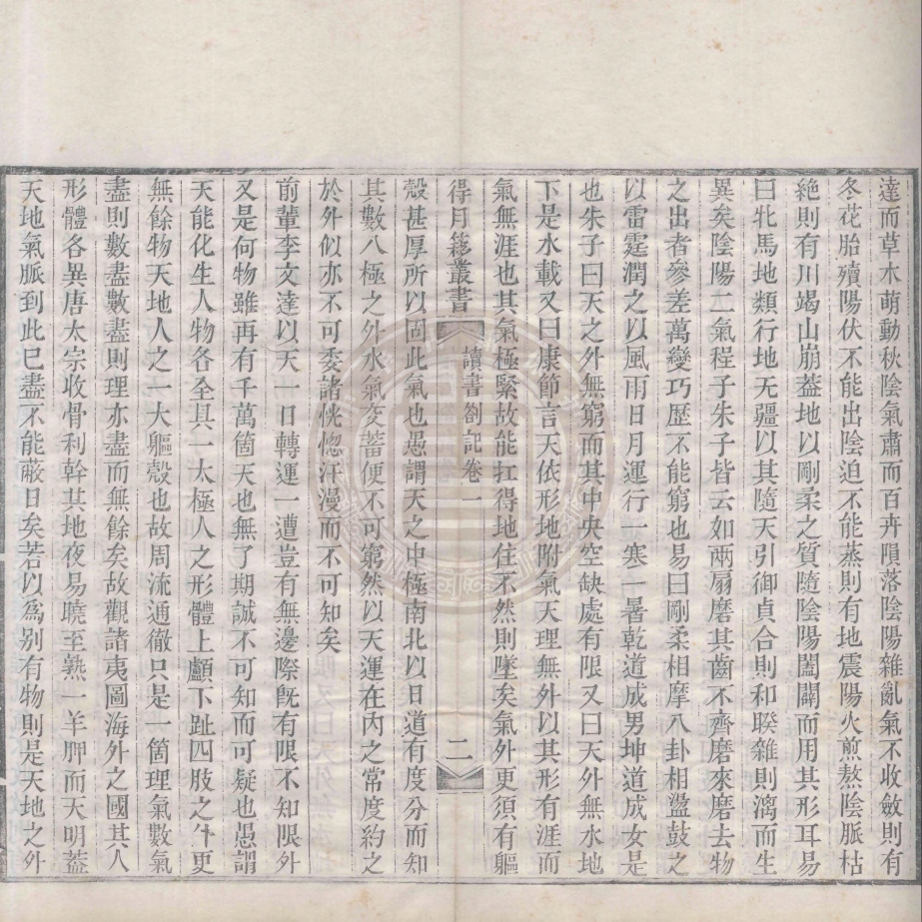 達而草木萌動秋陰氣肅而百卉隕落陰陽雜亂氣不收斂則有
冬花胎殰陽伏不能出陰迫不能蒸則有地震陽火煎熬陰脈枯
絶則有川竭山崩蓋地以剛柔之質隨陰陽闔闢而用其形耳易
曰牝馬地類行地无疆以其隨天引御貞合則和睽雜則漓而生
異矣陰陽二氣程子朱子皆云如兩扇磨其齒不齊磨來磨去物
之出者參差萬變巧歷不能窮也易曰剛柔相摩八卦相盪鼓之
以雷霆潤之以風雨日月運行一寒一暑乾道成男坤道成女是
也朱子曰天之外無窮而其中央空缺處有限又曰天外無水地
下是水載又曰康節言天依形地附氣天理無外以其形有涯而
氣無涯也其氣極緊故能扛得地住不然則墜矣氣外更須有軀
得月簃叢書 讀書劄記卷一 二
殼甚厚所以固此氣也愚謂天之中極南北以日道有度分而知
其數八極之外水氣交蓄便不可窮然以天運在內之常度約之
於外似亦不可委諸恍惚汗漫而不可知矣
前輩李文達以天一日轉運一遭豈有無邊際旣有限不知限外
又是何物雖再有千萬箇天也無了期誠不可知而可疑也愚謂
天能化生人物各全具一太極人之形體上顱下趾四肢之外更
無餘物天地人之一大軀殼也故周流通徹只是一箇理氣數氣
盡則數盡數盡則理亦盡而無餘矣故觀諸夷圖海外之國其人
形體各異唐太宗收骨利幹其地夜易曉至熟一羊胛而天明蓋
天地氣脈到此已盡不能蔽日矣若以為別有物則是天地之外